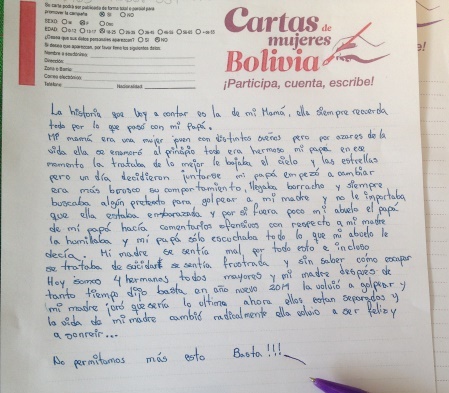 Su carta podrá ser publicada de forma total o parcial para
promover la campaña SI NO
SEXO: M F
EDAD: 0-12 13-17 18-25 26-35 36-45 46-55 56-65
¿Desea que sus datos personales aparezcan? SI NO
Si desea que aparezcan, por favor llene los siguientes datos:
Nombre o seudónimo:
Dirección:
Zona o Barrio:
Correo electrónico:
Teléfono: Nacionalidad:
Cartas de
mujeres
Bolivia
¡Participa, cuenta, escribe!
La historia que voy a contar es la de mi Mamá, ella siempre recuerda
todo por lo que pasó con mi Papá.
Mi mamá era una mujer joven con distintos sueños pero por azares de la
vida ella se enamoró al principio todo era hermoso mi papá en ese
momento la trataba de lo mejor le bajaba el cielo y las estrellas
pero un día decidieron juntarse mi papá empezó a cambiar
era más brusco su comportamiento, llegaba borracho y siempre
buscaba algún pretexto para golpear a mi madre y no le importaba
que ella estaba embarazada y por si fuera poco mi abuelo el papá
de mi papá hacía comentarios ofensivos con respecto a mi madre
la humillaba y mi papá sólo escuchaba todo lo que mi abuelo le
decía. Mi madre se sentía mal por todo esto e incluso
se trataba de suicidar se sentía frustrada y sin saber como escapar
Hoy somos 4 hermanos todos mayores y mi madre después de
tanto tiempo dijo basta, en año nuevo 2014 la volvió a golpear y
mi madre juró que sería lo último ahora ellos están separados y
la vida de mi madre cambió radicalmente ella volvió a ser feliz y
a sonreir...
No permitamos más esto Basta!!!